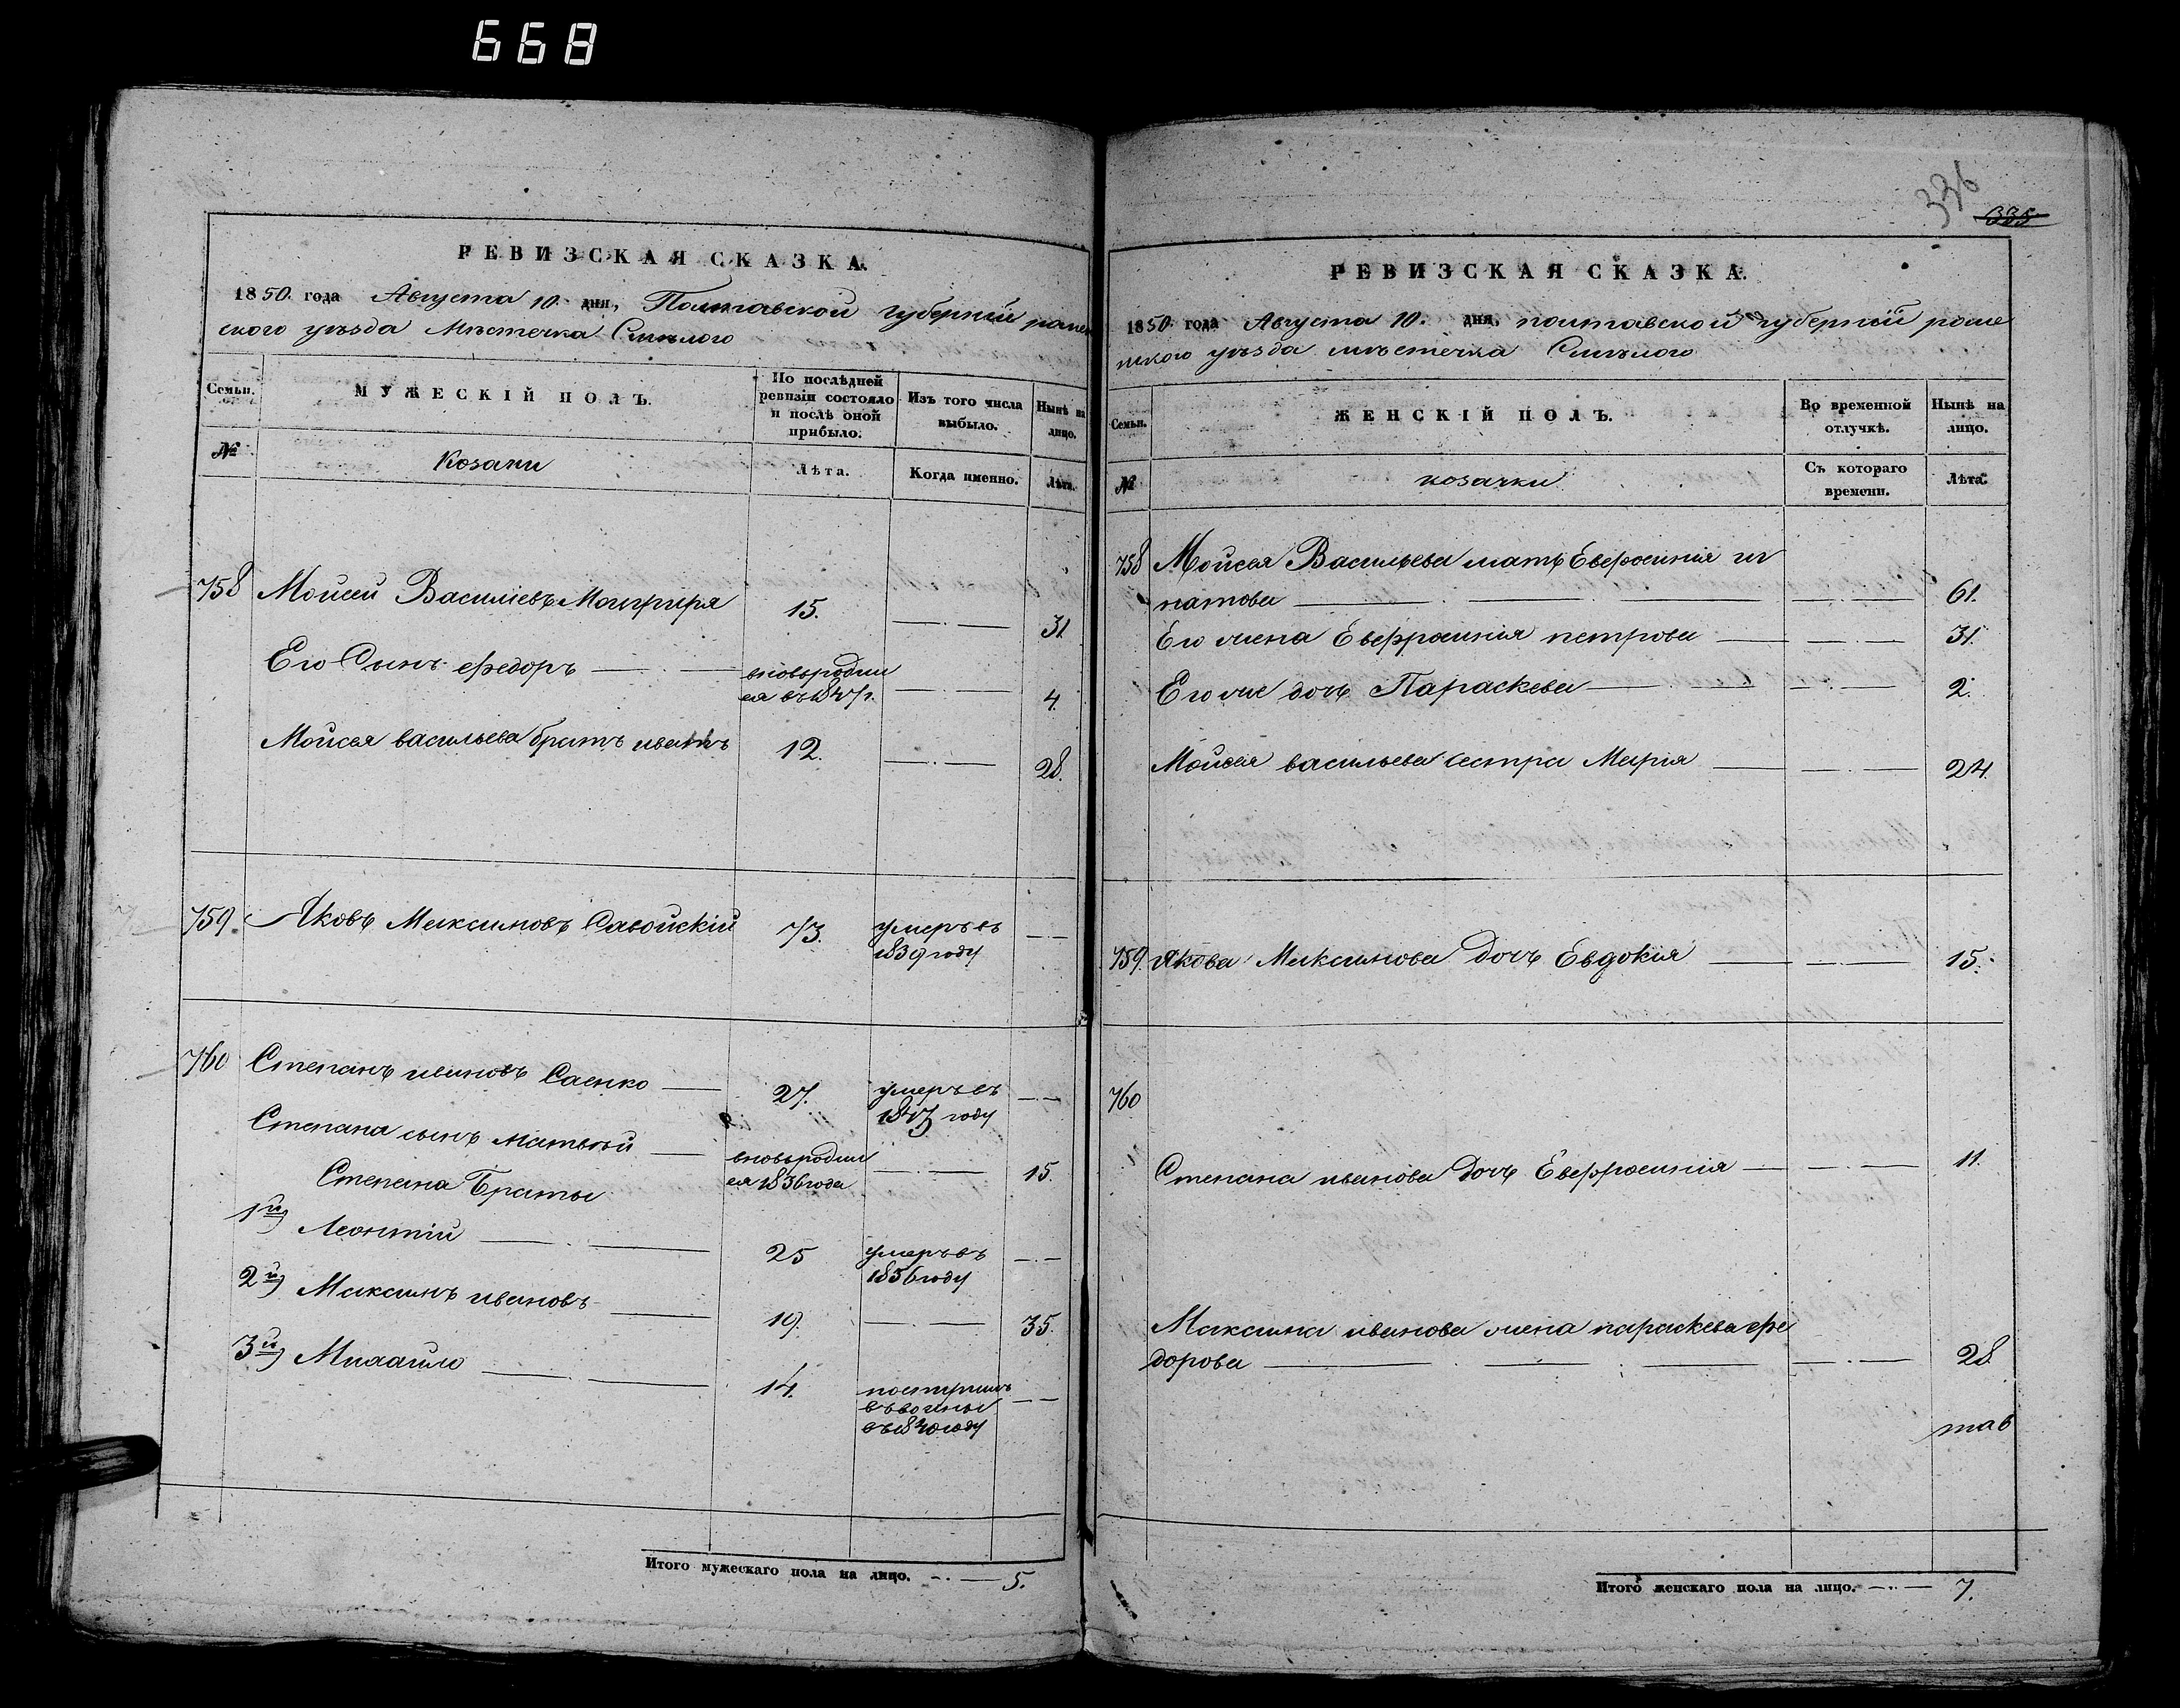 668
РЕВИЗСКАЯ СКАЗКА.
1850 года Августа 10 дня, Полтавской губерніи ромен
ского уѣзда Мѣстечка Смѣлого
Семьи. МУЖЕСКІЙ ПОЛЪ. По послѣдней ревизіи состояло и послѣ оной прибыло. Изъ того числа выбыло. Нынѣ на лицо.
№ Козаки Лѣта. Когда именно. Лѣта.
758 Мойсей Василіевъ 15. 31
Его Сынъ федоръ вновьродил
ся въ 1847г. 4.
Мойсея васильева братъ иванъ 12. 28.
759. Яковъ Максимовъ Савойскій 73. умеръ въ
1839 году
760 Степанъ ивановъ Саенко 27. умеръ въ
году
Степана сынъ Матвѣй вновьродил
ся 1836 года 15.
Степана Браты
1й) Леонтій 25 умеръ въ
1836 году
2й) Максимъ ивановъ 19. 35.
3й) Михайло 14. поступилъ
въ
въ 1840 году
Итого мужескаго пола на лицо. 5.
336
335
РЕВИЗСКАЯ СКАЗКА.
1850 года Августа 10. дня, полтавской губерніи роме
нского уѣзда мѣстечка Смѣлого
Семьи. ЖЕНСКІЙ ПОЛЪ. Во временной отлучкѣ. Нынѣ на лицо.
№ козачки Съ котораго времени. Лѣта.
758 Мойсея Васильева мать Евфросинія иг
натова 61.
Его жена Евфросинія петрова 31.
Его же дочь Параскева 2.
Мойсея васильева сестра Марія 24.
759. Якова Максимова Дочь Евдокія 15.
760
Степана иванова Дочь Евфросинія 11.
Максима иванова жена параскева фе
дорова 28.
тав
Итого женскаго пола на лицо. 7.